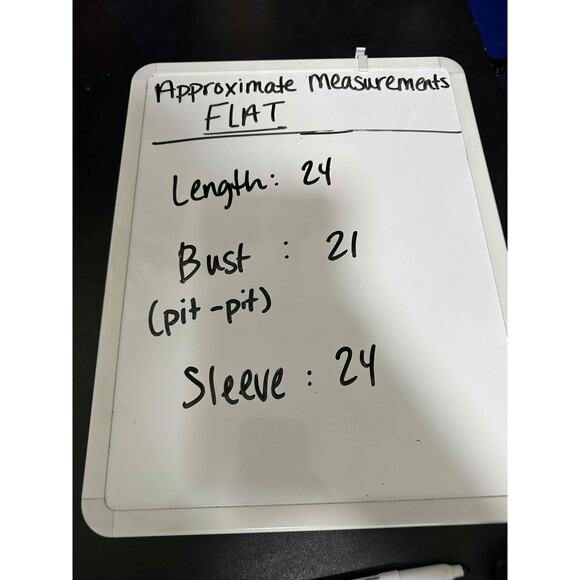 Approximate Measurements
FLAT
Length: 24
Bust : 21
(pit-pit)
Sleeve : 24